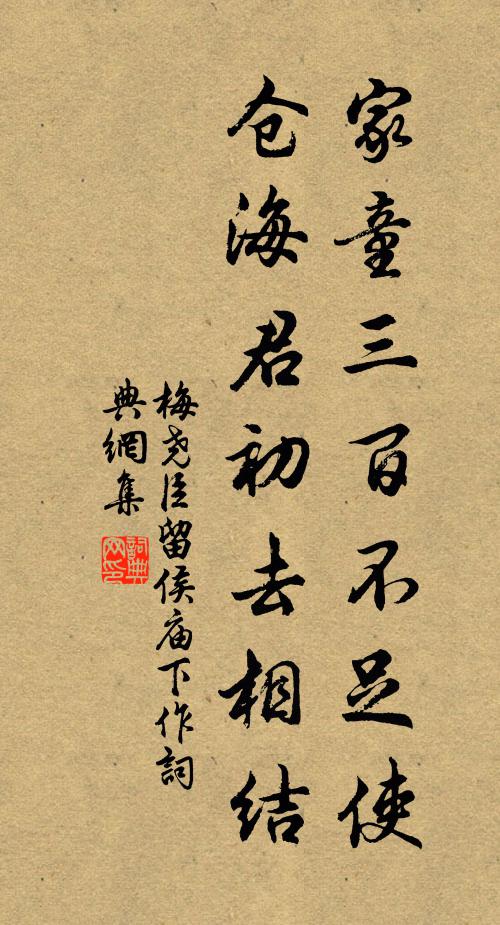 家童三百不足使
仓海君初去相结
梅尧臣留侯庙下作詞
典網集
詞典
网印